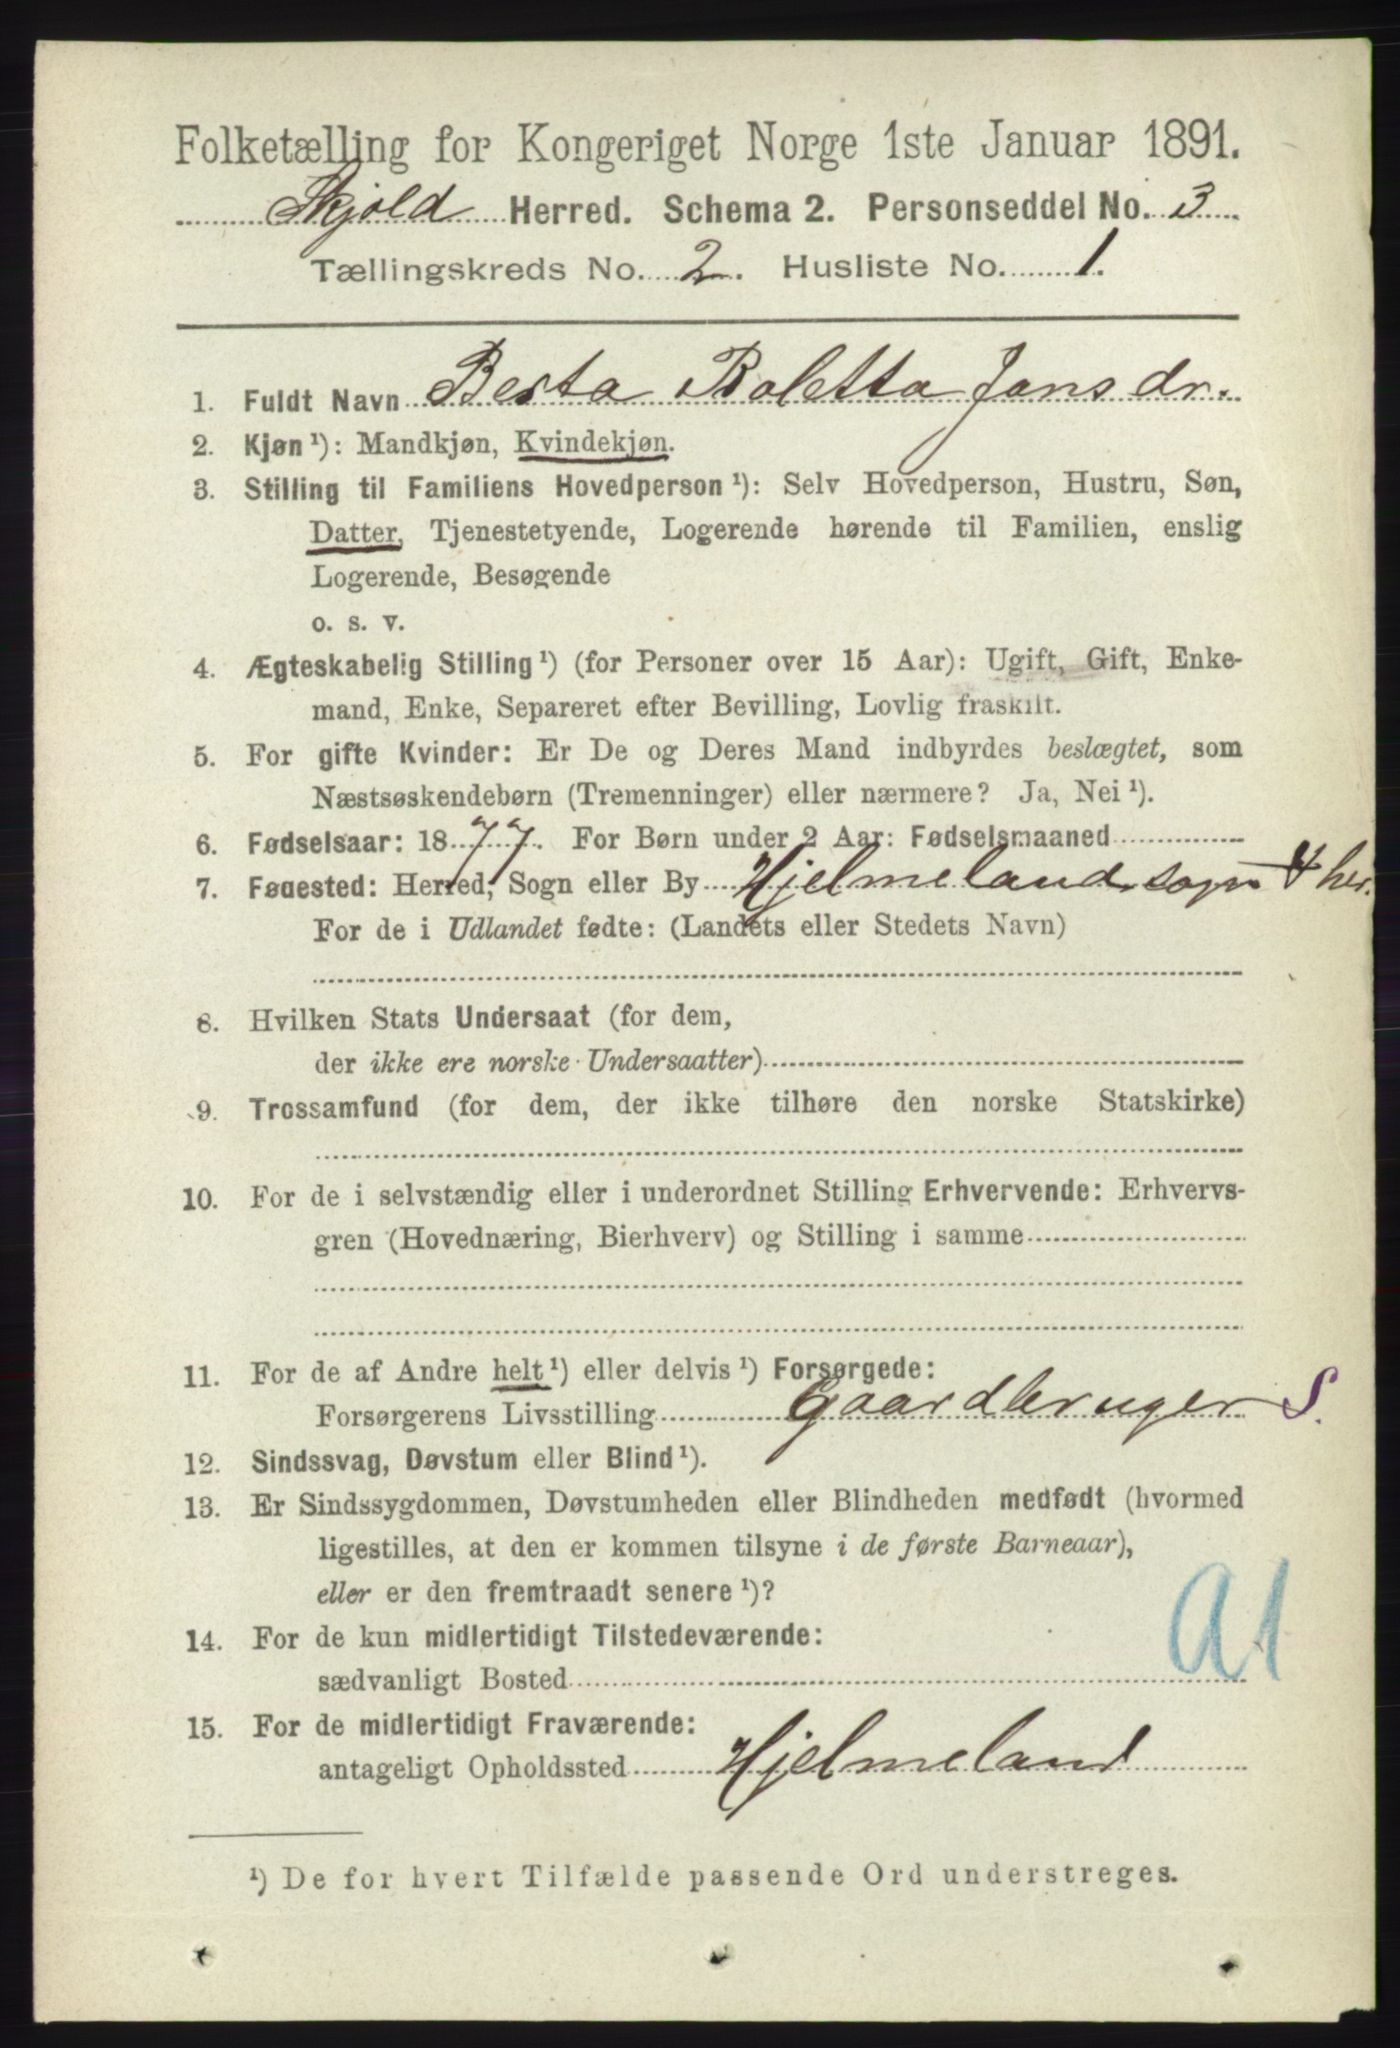 Folketælling for Kongeriget Norge 1ste Januar 1891.
Skjold Herred. Schema 2. Personseddel No. 3
Tællingskreds No. 2. Husliste No. 1.
1. Fuldt Navn Berta Boletta Jansdr.
2. Kjøn ¹): Mandkjøn, Kvindekjøn.
3. Stilling til Familiens Hovedperson ¹): Selv Hovedperson, Hustru, Søn,
Datter, Tjenestetyende, Logerende hørende til Familien, enslig
Logerende, Besøgende
o. s. v.
4. Ægteskabelig Stilling ¹) (for Personer over 15 Aar): Ugift, Gift, Enke-
mand, Enke, Separeret efter Bevilling, Lovlig fraskilt.
5. For gifte Kvinder: Er De og Deres Mand indbyrdes beslægtet, som
Næstsøskendebørn (Tremenninger) eller nærmere? Ja, Nei ¹).
6. Fødselsaar: 1877. For Børn under 2 Aar: Fødselsmaaned
7. Fødested: Herred, Sogn eller By Hjelmeland sogn & her.
For de i Udlandet fødte: (Landets eller Stedets Navn)
8. Hvilken Stats Undersaat (for dem,
der ikke ere norske Undersaatter)
9. Trossamfund (for dem, der ikke tilhøre den norske Statskirke)
10. For de i selvstændig eller i underordnet Stilling Erhvervende: Erhvervs-
gren (Hovednæring, Bierhverv) og Stilling i samme
11. For de af Andre helt ¹) eller delvis ¹) Forsørgede:
Forsørgerens Livsstilling Gaardbruger S.
12. Sindssvag, Døvstum eller Blind ¹).
13. Er Sindssygdommen, Døvstumheden eller Blindheden medfødt (hvormed
ligestilles, at den er kommen tilsyne i de første Barneaar),
eller er den fremtraadt senere ¹)?
14. For de kun midlertidigt Tilstedeværende:
sædvanligt Bosted
A1
15. For de midlertidigt Fraværende:
antageligt Opholdssted Hjelmeland
¹) De for hvert Tilfælde passende Ord understreges.